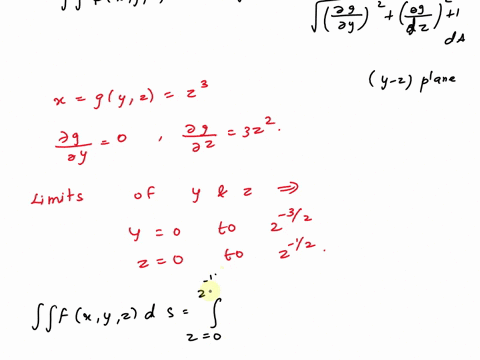 √((∂g/∂y)² + (∂g/dz)² + 1
dA
(y-z) plane
x = g(y, z) = z³
∂g/∂y = 0 , ∂g/∂z = 3z².
Limits of y & z ⇒
y = 0 to 2^(-3/2)
z = 0 to 2^(-1/2).
∫∫ F(x, y, z) d s = ∫_{z=0}^{2^-1}